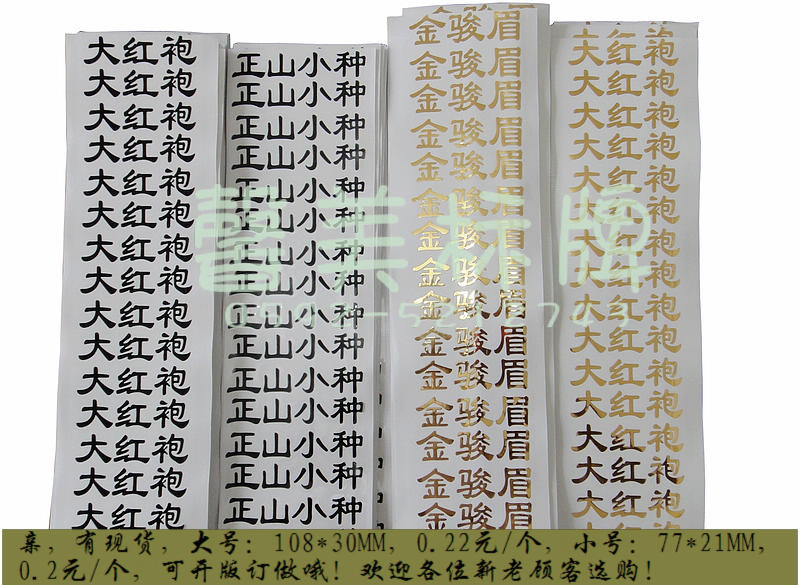 大红袍
大红袍
大红袍
大红袍
大红袍
大红袍
大红袍
大红袍
大红袍
大红袍
大红袍
大红袍
大红袍
大红袍
大红袍
正山小种
正山小种
正山小种
正山小种
正山小种
正山小种
正山小种
正山小种
正山小种
正山小种
正山小种
正山小种
正山小种
正山小种
正山小种
金骏眉
金骏眉
金骏眉
金骏眉
金骏眉
金骏眉
金骏眉
金骏眉
金骏眉
金骏眉
金骏眉
金骏眉
金骏眉
金骏眉
金骏眉
大红袍
大红袍
大红袍
大红袍
大红袍
大红袍
大红袍
大红袍
大红袍
大红袍
大红袍
大红袍
大红袍
大红袍
大红袍
馨美标牌
0592-5212743
亲，有现货，大号：108*30MM，0.22元/个，小号：77*21MM，
0.2元/个，可开版订做哦！欢迎各位新老顾客选购！